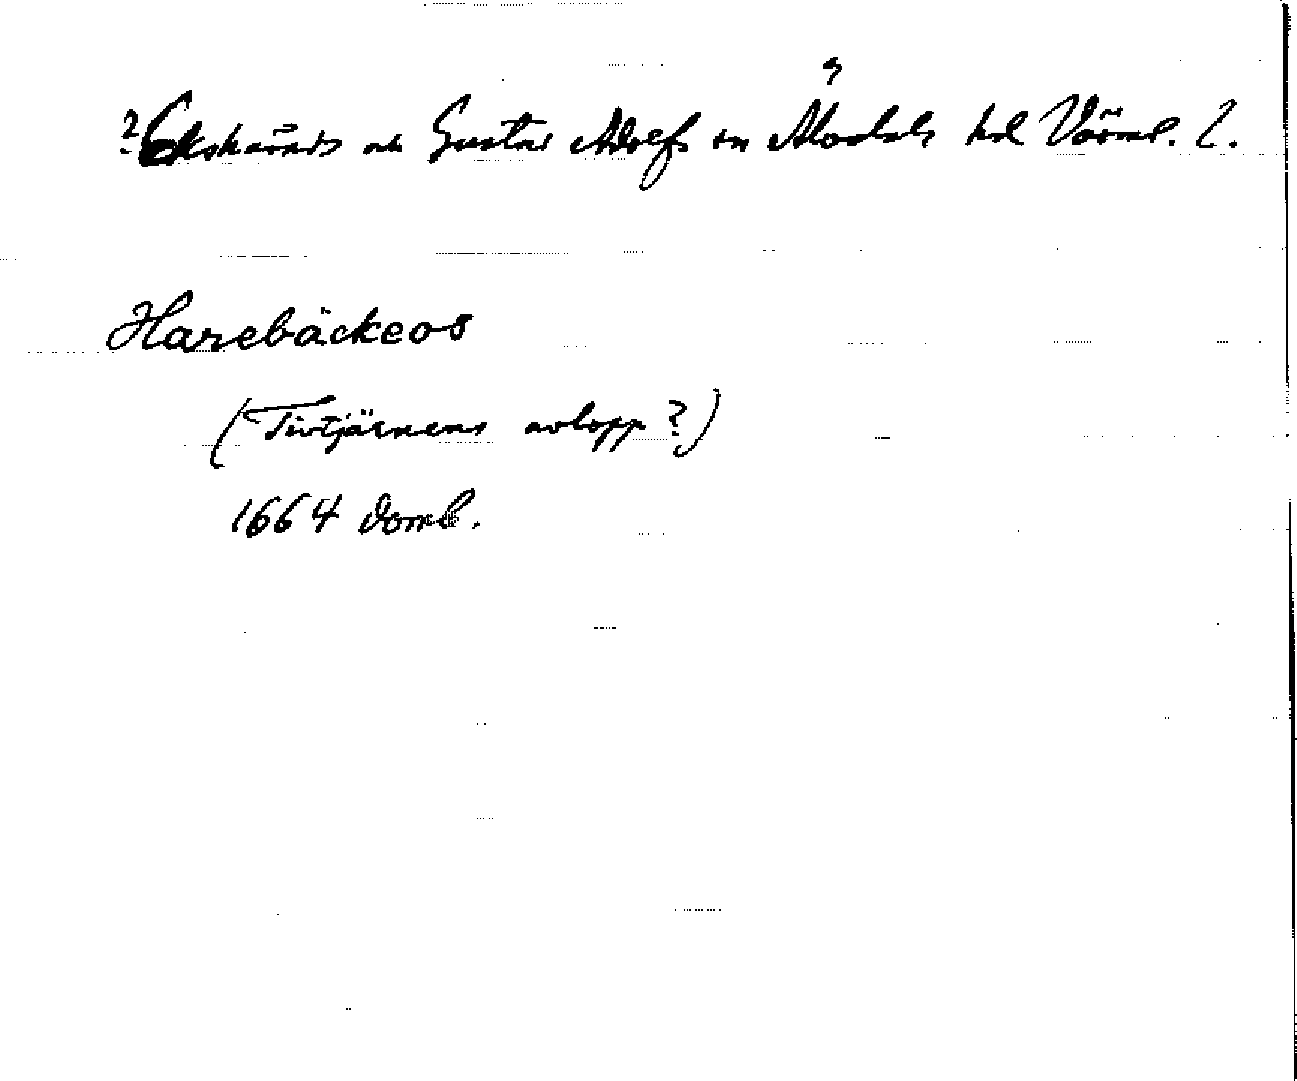 ? Ekshärads o Gustav Adolfs sn Älvdals hd Värml. l.
Harebäckeos
(Tivtjärnens avlopp?)
1664 Domb.